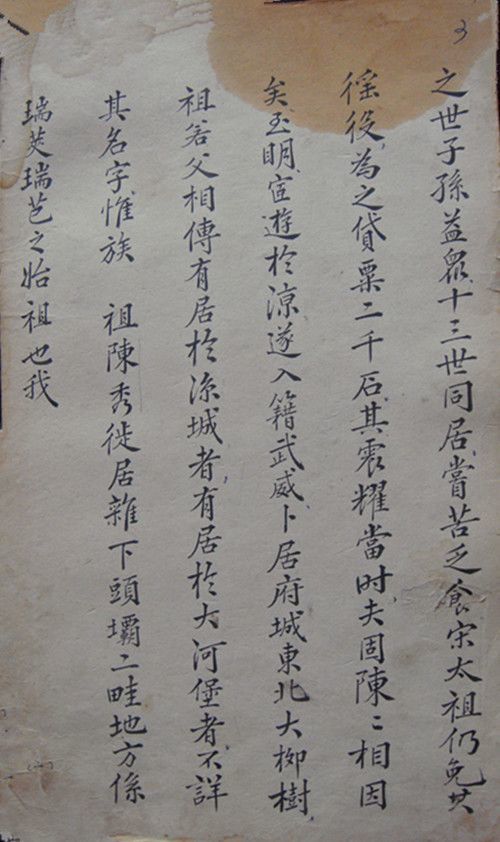 之世子孫益眾十三世同居嘗苦乏食宋太祖仍免其
徭役為之貸粟二千石其震耀當时夫固陳〻相因
矣至明宦遊於凉遂入籍武威卜居府城東北大柳樹
祖若父相傳有居於凉城者有居於大河堡者不詳
其名字惟族 祖陳秀徙居雜下頭壩二畦地方係
瑞芙瑞芑之始祖也我